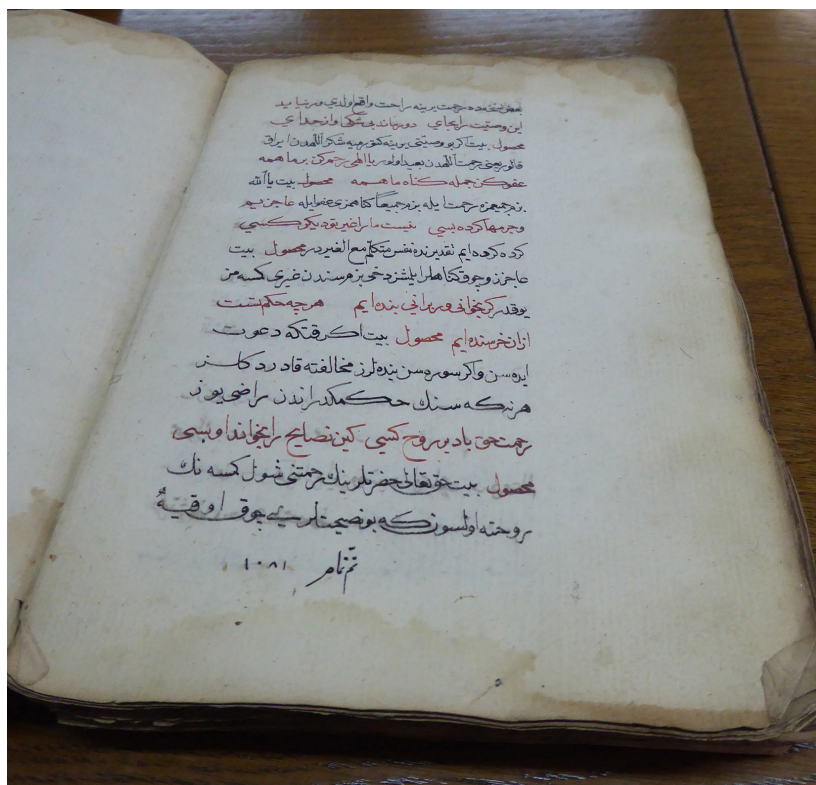 بعض نسخه ده رحمت یرینه راحت واقع اولدی ور نیامید
این وصیت را بجای دور ماند بی شکی وا نجدای
محصول بیت اکر بو وصیتی یرینه کتورمیه شکر اللهدن ایراق
قالور یعنی رحمت اللهدن بعید اولور یا الهی رحم کن بر ما همه
عفو کن جمله کناه ما همه محصول بیت یا الله
بزه جمیعمزه رحمت ایله بزه جمیعا کناهمزی عفو ایله عاجزیم
وجرمها کرده بسی نیست ما را غیر تو دیکر کسی
کرده کرده ایم تقدیرنده نفس متکلم مع الغیر در محصول بیت
عاجزز و چوق کناهلر ایلشز دخی بزم سندن غیری کسه مز
یوقدر کر بخوانی ور برانی بنده ایم هر چه حکم تست
ازان خرسنده ایم محصول بیت اکر قتکه دعوت
ایده سن و اکر سوره سن بنده لرز مخالفته قادر دکلز
هر نه که سنك حکمکدر اندن راضی یوز
رحمت حق باد بر روح کسی کین نصایح را بخواند او بسی
محصول بیت حق تعالی حضرتلرینك رحمتی شول کمسه نك
روحنه اولسون که بو نصیحتلری چوق اوقیه
تم تمام ۱۰۸۱